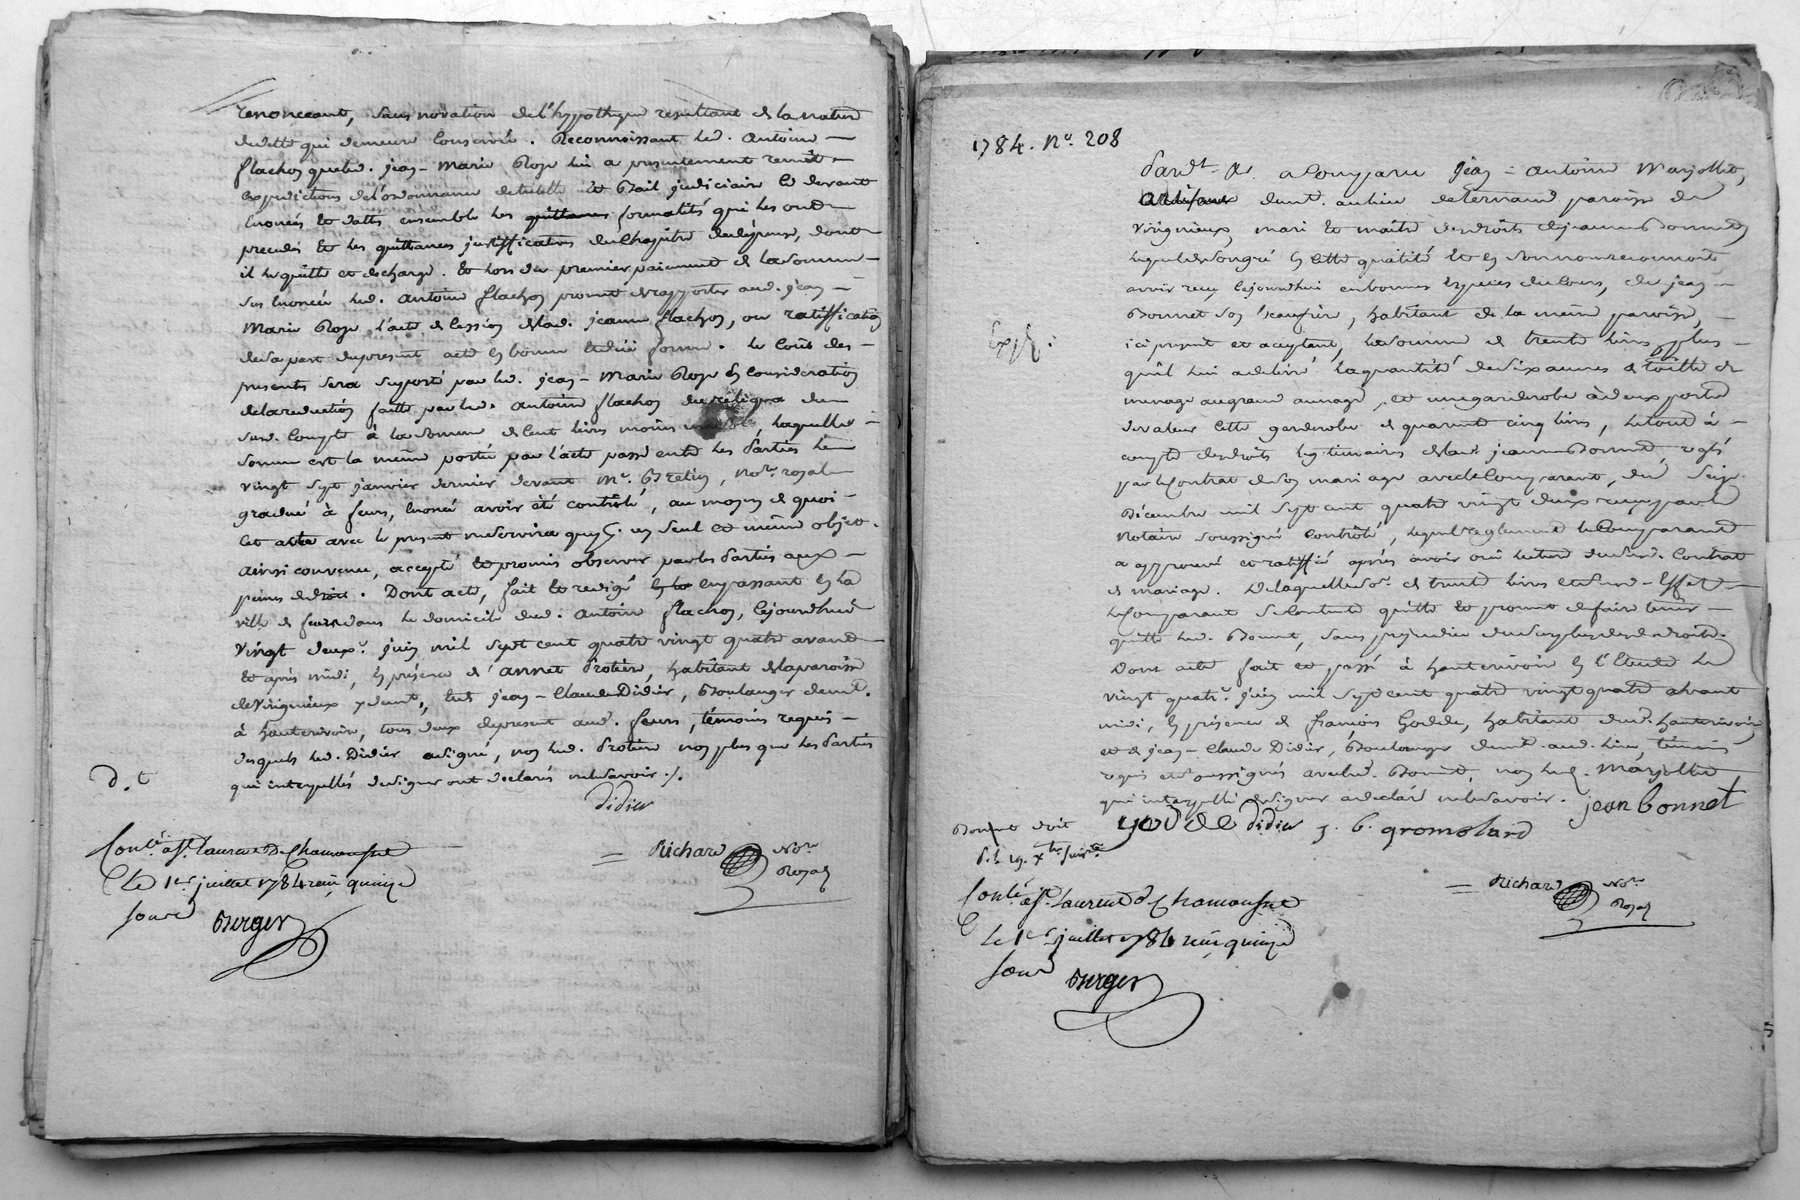 renonceant, sans novation de l'hypotheque resultant de la nature
de dette qui demeure conservée. Reconnoissant led. Antoine
flachon que led. jean-Marie Roge lui a presentement remis
expeditions de l'ordonnance de tutelle et Bail judiciaire cy devant
enoncés et dattés ensemble les quittances formalités qui les ont
precedés et les quittances justifficatives du Chapitre de depense, dont
il le quitte et decharge. et lors du premier paiement de la somme
sus enoncée led. Antoine flachon promet de rapporter aud. jean
Marie Roge l'acte de cession de lad. jeanne flachon, ou ratiffication
de sa part du present acte en bonne et due forme. le coût des
presents sera suporté par led. jean-Marie Roge en consideration
de la reduction faitte par led. Antoine flachon du reliqua du
sud. compte à la somme de cent livres moins, laquelle
somme est la même portée par l'acte passé entre les Parties le
vingt sept janvier dernier devant Me. Bretin, Nore. royal
gradué à feurs, enoncé avoir été controlé, au moyen de quoi
cet acte avec le present ne servira que d'un seul et même objet.
ainsi convenu, accepté et promis observer par les Parties aux
peines de droit. Dont acte, fait et redigé en passant en la
ville de feurs dans le domicile dud. Antoine flachon, cejourdhui
vingt deuxe. juin mil sept cent quatre vingt quatre avant
et après midi, en présence d'annet Protiere, habitant de la paroisse
de Virignieux y demt., et jean-Claude Didier, Boulanger demt.
à hauterivoir, tous deux de present aud. feurs, témoins requis
desquels led. Didier a signé, non led. Protiere non plus que les Parties
qui interpellés de signer ont declarés ne le savoir ./.
Didier
D. t
Conlé. à St. Laurent De Chamousset
Le 1er juillet 1784 reçu quinze
sous
Berger
Richard Nore.
Royal
1784. No. 208
Pardt. Nre. a Comparu jean-antoine Marjollet,
demt. au lieu de ternand paroisse de
Virignieux, mari et maitre des droits de jeanne Bonnet
lequel de son gré en cette qualité et en son nom reconnoit
avoir reçu cejourdhui en bonnes especes du cours, de jean
Bonnet son beaufrere, habitant de la même paroisse,
ici present et acceptant, la somme de trente livres, plus
Exp.
qu'il lui a delivré la quantité de six aunes de toille de
menage au grand aunage, et une garderobe à deux portes
de valeur cette garderobe de quarante cinq livres, le tout à
compte des droits legitimaires de lad. jeanne Bonnet reglés
par le contrat de son mariage avec le Comparant, du seize
Décembre mil sept cent quatre vingt deux reçu par le
Notaire soussigné controlé, lequel reglement le Comparant
a approuvé et ratiffié après avoir oui lecture dud. Contrat
de mariage. De laquelle so. de trente livres et sud. Effets
le Comparant se contente quitte et promet de faire tenir
quitte led. Bonnet, sans prejudice du surplus desd. droits.
Dont acte fait et passé à hauterivoir en l'Etude le
vingt quatre. juin mil sept cent quatre vingt quatre avant
midi, en présence de françois Godde, habitant dud. hauterivoir,
et de jean-Claude Didier, Boulanger demt. aud. lieu, témoins
requis et soussignés avec led. Bonnet, non led. Marjollet
qui interpellé de signer a declaré ne le savoir. jean bonnet
Bonnet doit
Didier J. B. gromolard
Conlé. à St. Laurent de Chamousset
Le 1er juillet 1784 reçu quinze
sous
Berger
Richard Nore.
Royal